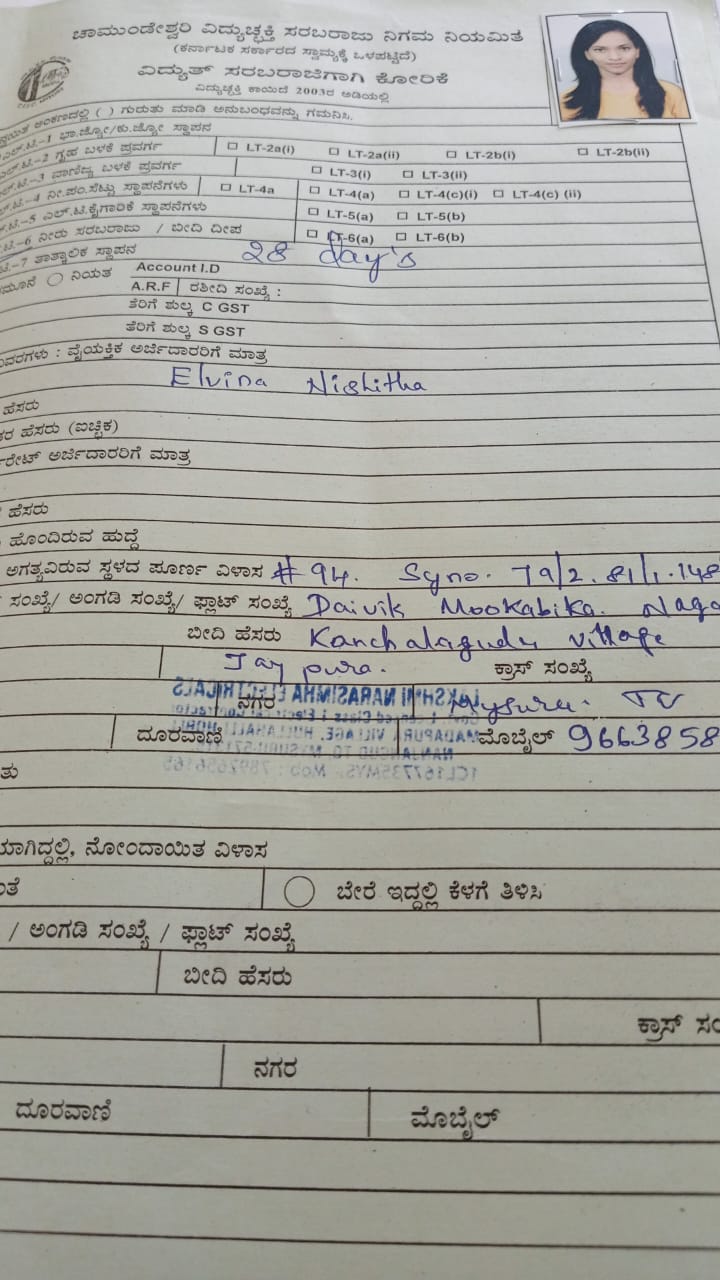 ಚಾಮುಂಡೇಶ್ವರಿ ವಿದ್ಯುಚ್ಛಕ್ತಿ ಸರಬರಾಜು ನಿಗಮ ನಿಯಮಿತ
(ಕರ್ನಾಟಕ ಸರ್ಕಾರದ ಸ್ವಾಮ್ಯಕ್ಕೆ ಒಳಪಟ್ಟಿದೆ)
ವಿದ್ಯುತ್ ಸರಬರಾಜಿಗಾಗಿ ಕೋರಿಕೆ
ವಿದ್ಯುಚ್ಛಕ್ತಿ ಕಾಯಿದೆ 2003ರ ಅಡಿಯಲ್ಲಿ
ಅಂಕಣದಲ್ಲಿ ( ) ಗುರುತು ಮಾಡಿ ಅನುಬಂಧವನ್ನು ಗಮನಿಸಿ.
ಎಲ್.ಟಿ.-1 ಭಾ.ಜ್ಯೋ/ಕು.ಜ್ಯೋ ಸ್ಥಾಪನ
ಎಲ್.ಟಿ.-2 ಗೃಹ ಬಳಕೆ ಪ್ರವರ್ಗ LT-2a(i) LT-2a(ii) LT-2b(i) LT-2b(ii)
ಎಲ್.ಟಿ.-3 ವಾಣಿಜ್ಯ ಬಳಕೆ ಪ್ರವರ್ಗ LT-3(i) LT-3(ii)
ಎಲ್.ಟಿ.-4 ನೀ.ಪಂ.ಸೆಟ್ಟು ಸ್ಥಾಪನೆಗಳು LT-4a LT-4(a) LT-4(c)(i) LT-4(c) (ii)
ಟಿ.-5 ಎಲ್.ಟಿ.ಕೈಗಾರಿಕೆ ಸ್ಥಾಪನೆಗಳು LT-5(a) LT-5(b)
ಟಿ.-6 ನೀರು ಸರಬರಾಜು / ಬೀದಿ ದೀಪ LT-6(a) LT-6(b)
ಟಿ.-7 ತಾತ್ಕಾಲಿಕ ಸ್ಥಾಪನ 28 day's
ನಿಯತ Account I.D
A.R.F ರಶೀದಿ ಸಂಖ್ಯೆ :
ತೆರಿಗೆ ಶುಲ್ಕ C GST
ತೆರಿಗೆ ಶುಲ್ಕ S GST
ವಿವರಗಳು : ವೈಯಕ್ತಿಕ ಅರ್ಜಿದಾರರಿಗೆ ಮಾತ್ರ
Elvina Nishitha
ಹೆಸರು
ಹೆಸರು (ಐಚ್ಛಿಕ)
ಅರ್ಜಿದಾರರಿಗೆ ಮಾತ್ರ
ಹೆಸರು
ಹೊಂದಿರುವ ಹುದ್ದೆ
ಅಗತ್ಯವಿರುವ ಸ್ಥಳದ ಪೂರ್ಣ ವಿಳಾಸ # 94. Syno. 79/2.81/1.148
ಸಂಖ್ಯೆ/ ಅಂಗಡಿ ಸಂಖ್ಯೆ/ ಫ್ಲಾಟ್ ಸಂಖ್ಯೆ Daivik Mookabika. Naga
ಬೀದಿ ಹೆಸರು Kanchalagudu village
Jaypura. ಕ್ರಾಸ್ ಸಂಖ್ಯೆ
ನಗರ Mysuru. TV
ದೂರವಾಣಿ ಮೊಬೈಲ್ 9663858
ಯಾಗಿದ್ದಲ್ಲಿ, ನೋಂದಾಯಿತ ವಿಳಾಸ
ಬೇರೆ ಇದ್ದಲ್ಲಿ ಕೆಳಗೆ ತಿಳಿಸಿ
/ ಅಂಗಡಿ ಸಂಖ್ಯೆ / ಫ್ಲಾಟ್ ಸಂಖ್ಯೆ
ಬೀದಿ ಹೆಸರು
ಕ್ರಾಸ್ ಸಂ
ನಗರ
ದೂರವಾಣಿ ಮೊಬೈಲ್